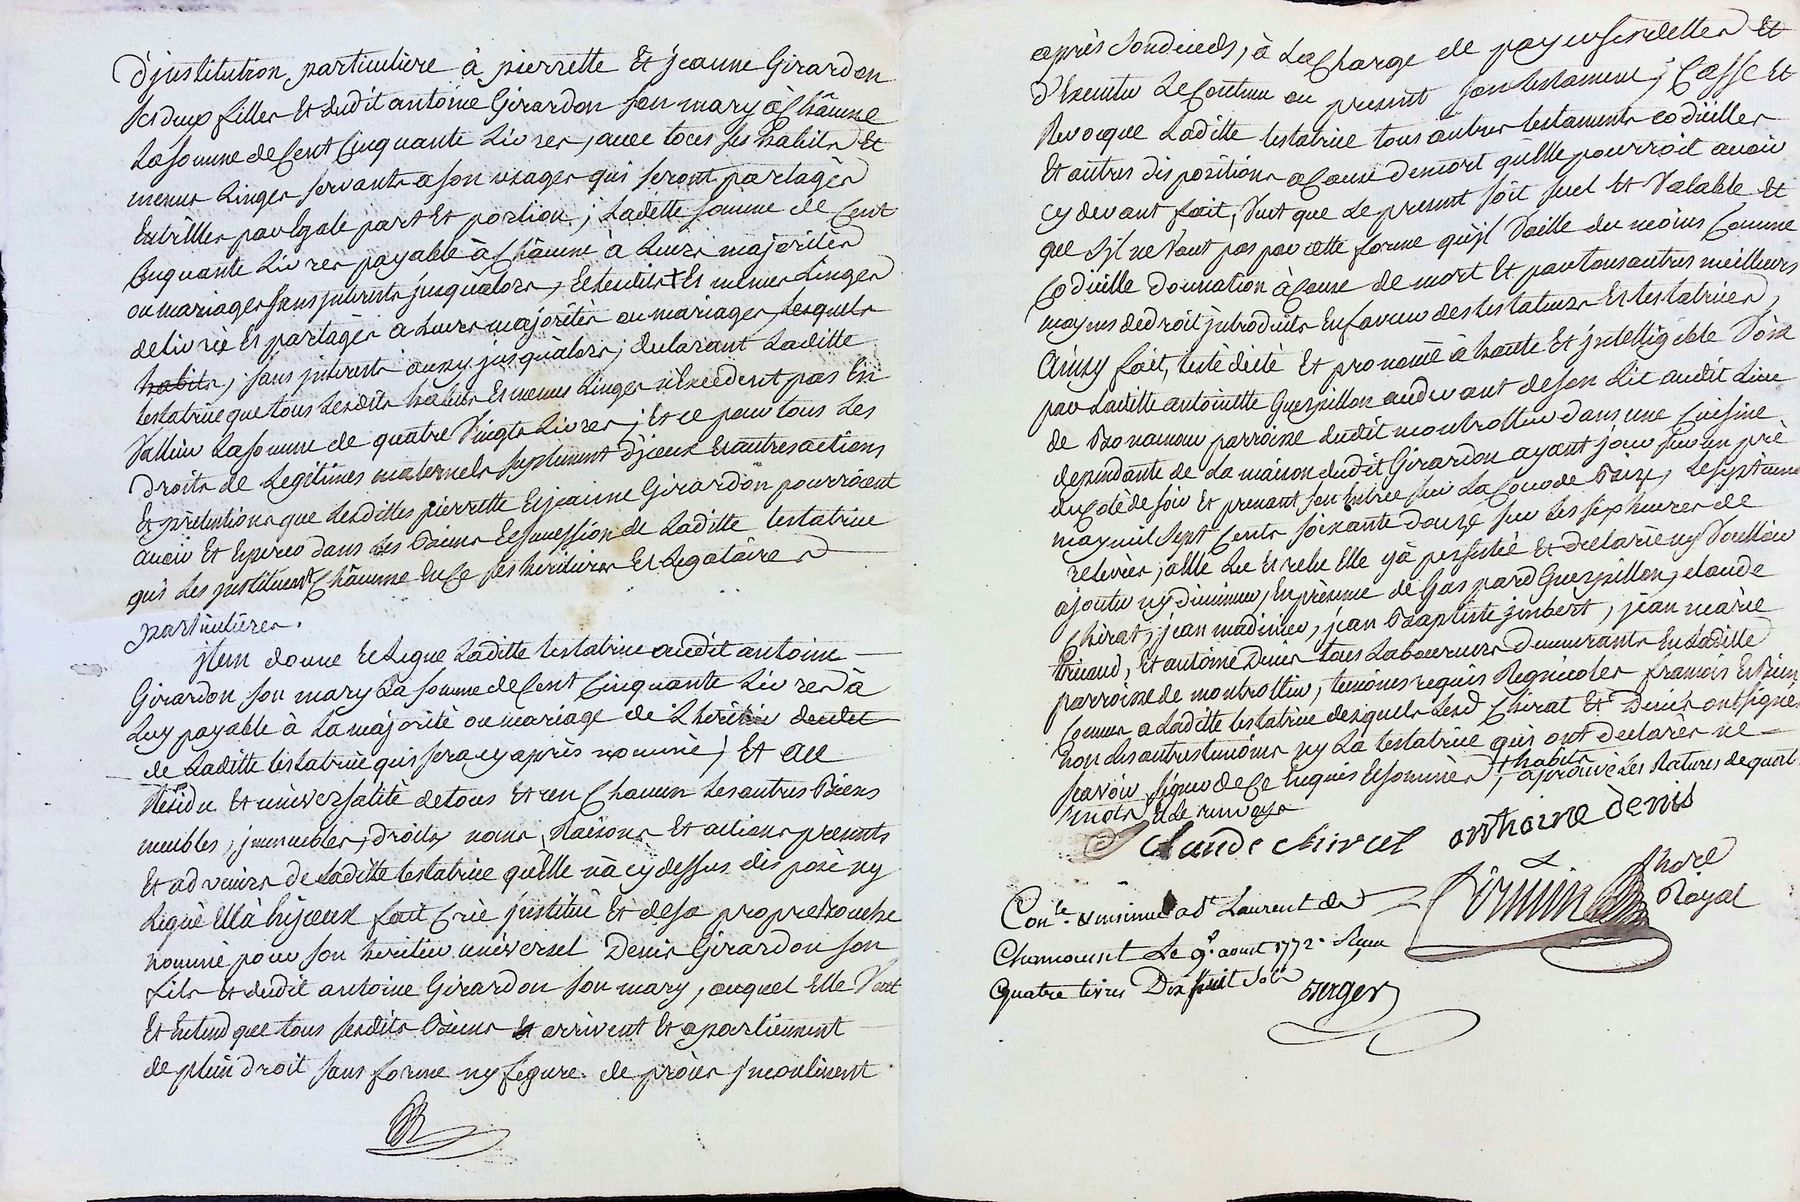 d'jnstitution particuliere à pierrette Et jeanne Girardon
ses deux filles Et dudit antoine Girardon son mary à Châcune
La somme de Cent Cinquante Livres, avec tous ses habits Et
menus Linges servants a son usages qui seront partagés
Entr'Elles par Egale part Et portion; Laditte somme de Cent
Cinquante Livres payable à Châcune à Leurs majorités
ou mariages sans jnterests jusqu'alors, Et lesdits + Et menus Linges
delivrés Et partagés a Leurs majorités ou mariages, Lesquels
habits, sans jnterests aussy jusqu'alors; declarant Laditte
testatrice que tous Lesdits habits Et menus Linges n'Excedent pas En
Valleur La somme de quatre Vingts Livres; Et ce pour tous Les
Droits de Legitimes maternels suplément d'jceux Et autres actions
Et prétentions que Lesdittes pierrette Et jeanne Girardon pourroient
avoir Et Esperer dans Les Biens Et succession de Laditte testatrice
qui Les jnstituent Châcunne En Ce ses heritieres Et Legataires
particulieres.
jtem donne Et Legue Laditte testatrice audit antoine
Girardon son mary La somme de Cent Cinquante Livres à
Luy payable à La majorité ou mariage de L'heritier dudit
de Laditte testatrice qui sera cy après nommé; Et au
Résidu Et universalité de tous Et un Chacun Les autres Biens
meubles, jmmeubles, Droits, noms, Raisons Et actions presents
Et advenirs de Laditte testatrice qu'Elle n'a cy dessus disposé ny
Légué Ell'à Enjceux fait Créé jnstitué Et de sa propre Bouche
nommé pour son heritier universel Denis Girardon son
fils Et dudit antoine Girardon son mary, auquel Elle Veut
Et Entend que tous sesdits Biens arrivent Et apartiennent
de plein droit sans forme ny figure de procès jncontinent
après son decès, à La Charge de payer ses dettes Et
d'Executer Le Contenu au present son testament; Casse Et
Revocque Laditte testatrice tous autres testaments codicilles
Et autres dispositions a Cause de mort qu'Elle pourroit avoir
cy devant fait, Veut que Le present soit seul Et Valable Et
que s'jl ne Vaut pas par cette forme qu'jl Vaille du moins Comme
Codicille donnation à Cause de mort Et par tous autres meilleurs
moyens de droit jntroduits En faveur des testateurs Et testatrices,
Ainsy fait, testé dicté Et prononcé à haute Et jntelligible Voix
par Laditte antoinette Guerpillon au devant de son Lit audit Lieu
de parroisse dudit montrottier dans une Cuisine
dependante de La maison dudit Girardon ayant jour sur un pré
du Coté de soir Et prenant son Entrée sur La Cour de Bize, Le septieme
may mil sept Cents soixante douze sur Les sept heures de
relevées, a Elle Lu Et relu Elle y à persisté Et declaré n'y Voulloir
ajouter ny diminuer, En présence de Gaspard Guerpillon, claude
Chirat, jean madinier, jean Baptiste jmbert, jean marie
thicaud, Et antoine Denis tous Laboureurs demeurants En Laditte
parroisse de montrottier, temoins requis Regnicoles francois Et Bien
Connus a Laditte testatrice desquels Lesd. Chirat Et Denis ont signé
non Les autres temoins ny La testatrice qui ont declarés ne
scavoir signer de Ce Enquis Et sommés + habits, aprouvé Les Ratures de quatre
mots Et Le renvoy
Claude chirat anthoine denis
nore Royal
Con.le & insinué a St Laurent de
Chamousset Le 9e aoust 1772. Reçu
quatre livres Dix huit sols